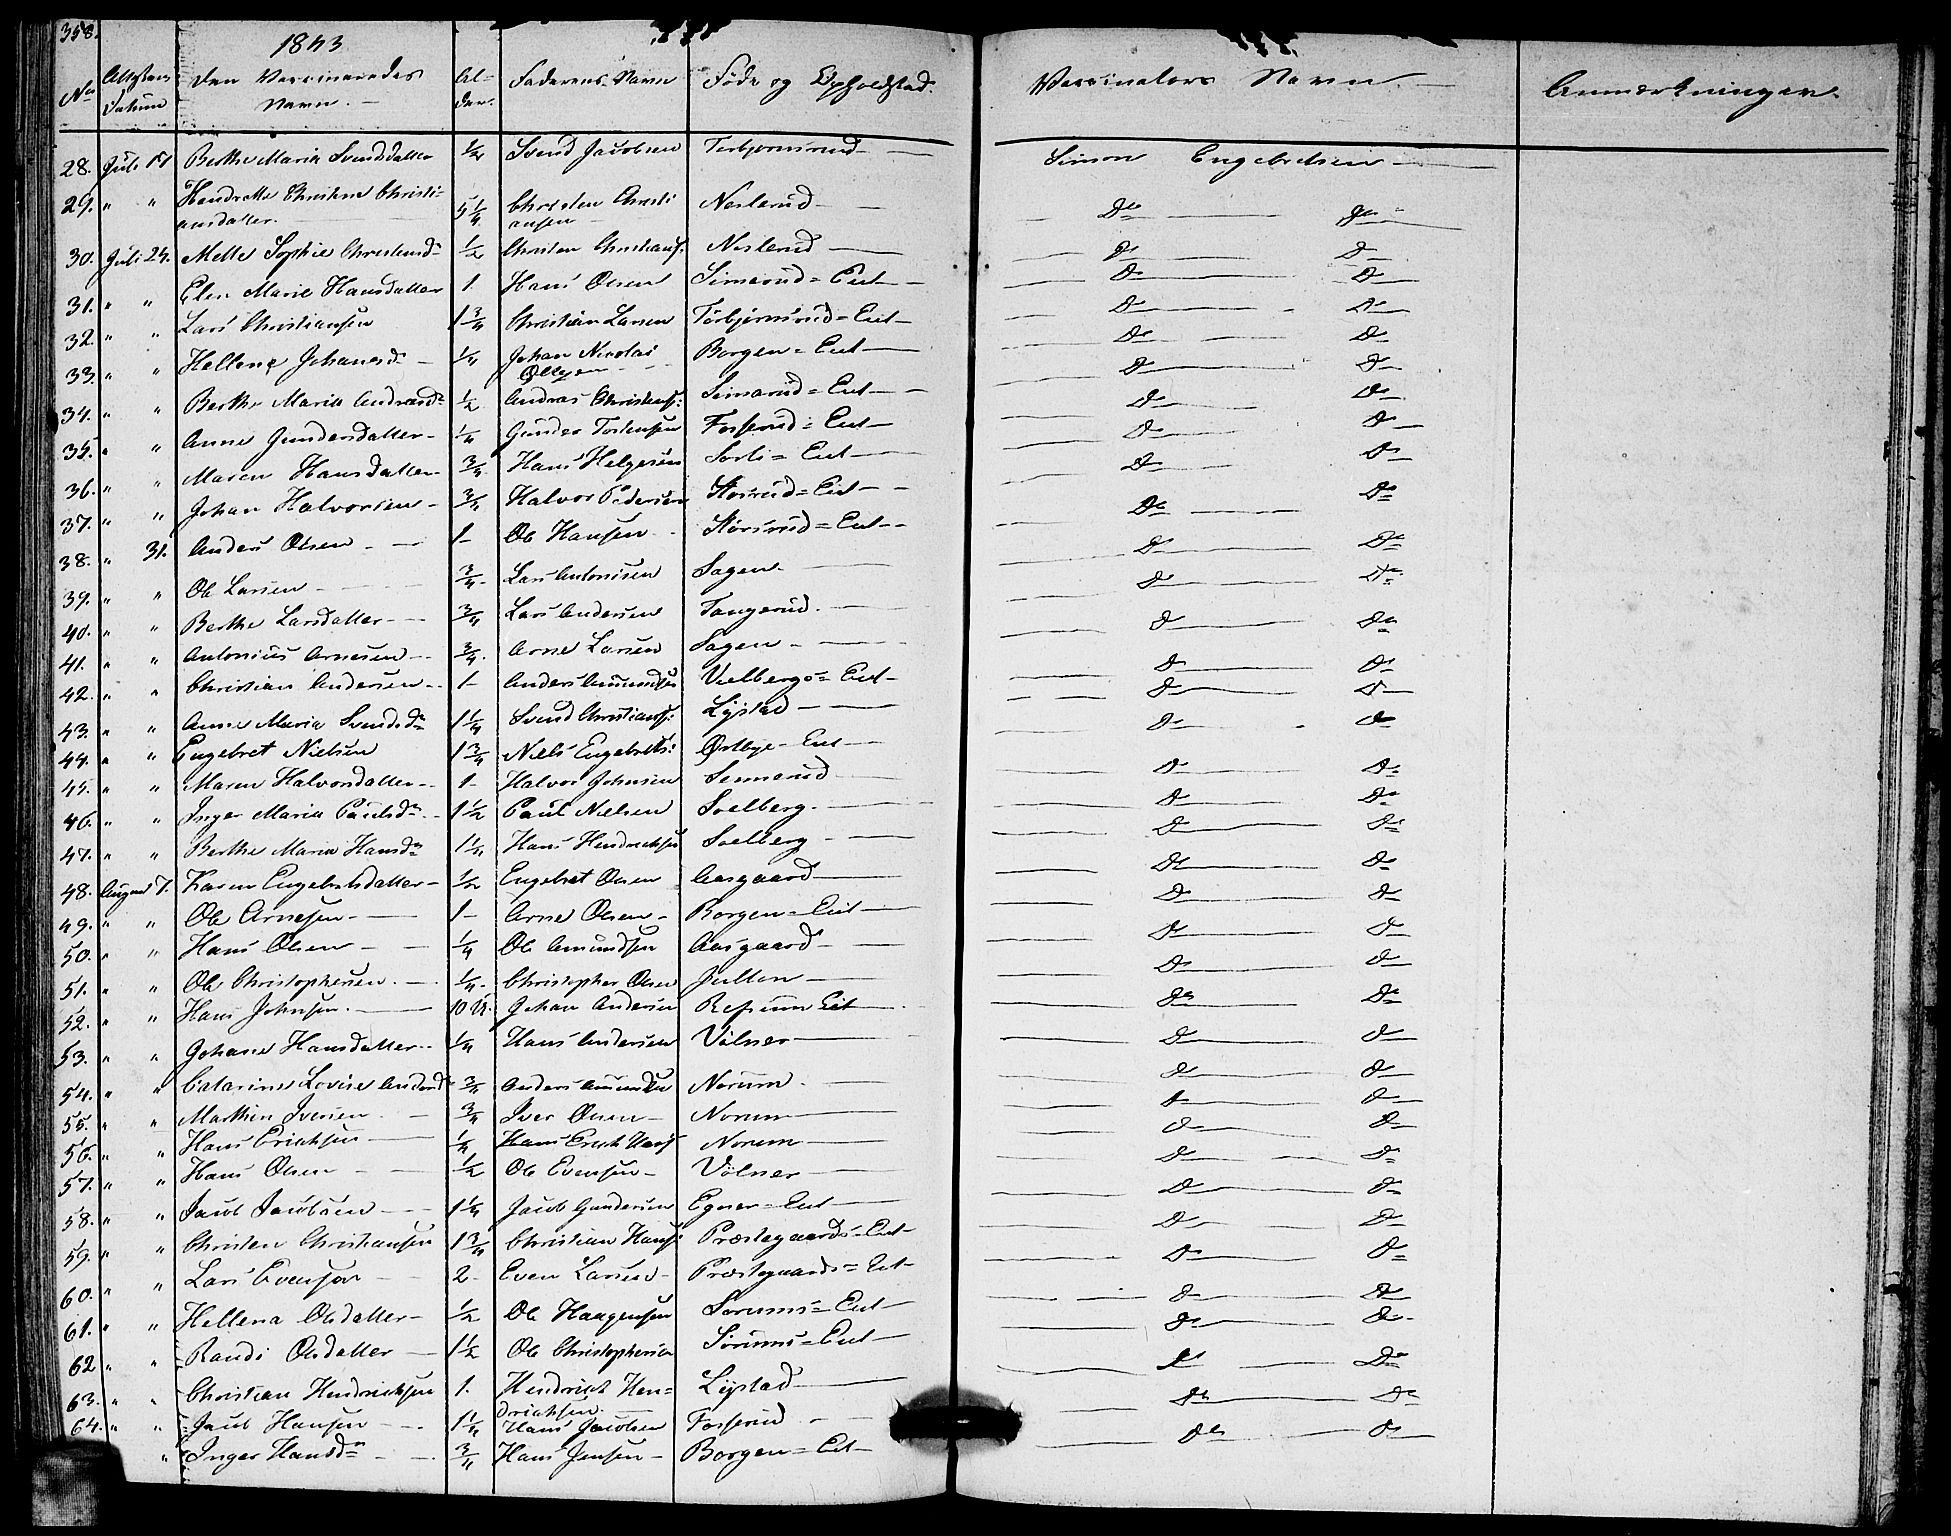 358.
1843
No Attestens Datum Den Vaccineredes Navn. Alder. Faderens Navn Føde og Opholdstad. Vaccinators Navn. Anmærkninger.
28. Juli 17 Berthe Maria Svendsdatter 1/2 Svend Jacobsen Torbjørnsrud — Simon Engebretsen —
29. " " Christine Christiansdatter. 5 1/4 Christen Christiansen Neslerud — Do Do
30. Juli 24. Mette Sophie 1/2 Christen Christians: Neslerud — D D
31. " " Elen Marie Hansdatter 1. Hans Olsen Simerud = Eiet — D D
32. " " Lars Christiansen 1 3/4 Christian Larsen Torbjørnsrud = Eiet — D D
33. " " Hellene Johansd 1/4 Johan Nicolai Borgen = Eiet — D D
34. " " Berthe Maria Andreasd 1/2 Andreas Christians: Simerud = Eiet — D D
35. " " Anne Gundersdatter — 1/4 Gunder Torstensen Fosserud = Eiet — D D
36. " " Maren Hansdatter 3/4 Hans Helgesen Sorli = Eiet — D D
37. " " Johan Halvorsen — 3/4 Halvor Pedersen = Eiet — D D
38. " 31. Anders Olsen — 1 — Ole Hansen = Eiet — Do Do
39. " " Ole Larsen 3/4 Lars Antonisen Sagen — D Do
40. " " Berthe Larsdatter — 3/4 Lars Andersen Tangerud. — D Do
41. " " Antonius Arnesen — 3/4. Arne Larsen Sagen — D Do
42. " " Christian Andersen — 1 — Anders Amundsen = Eiet — D D
43. " " Anne Maria Svendsdr 1 1/4 Svend Christians: Lystad — D D
44. " " Engebret Nielsen 1 3/4 Niels Engebrets: Østbye = Eiet — D D
45. " " Maren Halvorsdatter — 1 — Halvor Johnsen — D D
46. " " Inger Maria Paulsdr 1 1/2 Paul Nielsen Soelberg. — D Do
47. " " Berthe Maria Hansdr 1 1/4 Hans Hendrichsen Soelberg — D Do
48. August 7. Karen Engebretsdatter — 1/2 Engebret Olsen Aasgaard — D D
49. " " Ole Arnesen — 1 — Arne Olsen — Borgen = Eiet — D D
50. " " Hans Olsen — 1/4 Ole Amundsen Aasgaard — D D
51. " " Ole Christophersen. — 1/4 Christopher Olsen Julton — D D
52. " " Hans Johnsen. — 10 U. Johan Andersen Refsum Eiet — Do Do
53. " " Johane Hansdatter — 1/4 Hans Andersen Vølner — D D
54. " " Catarine Lovise Andersd 3/4 Anders Amundsen Norum. — D D
55. " " Mathien Iversen — 3/4 Iver Olsen — Norum — D D
56. " " Hans Erichsen — 1/4 Hans Erich Hans: Norum — D D
57. " " Hans Olsen — 1/2 Ole Evensen — Vølner — D D
58. " " Jacob Jacobsen — 1 1/4 Jacob Gundersen Egner = Eiet — D D
59. " " Christen Christiansen 1 3/4 Christian Hans: Præstegaards = Eiet — D D
60. " " Lars Evensen — 2 — Even Larsen — Præstegaards = Eiet — D D
61. " " Hellena Olsdatter — 1/2 Ole Haagensen Sørums = Eiet — D D
62 " " Randi Olsdatter — 1 1/2 Ole Christophersen Sørums = Eiet — D D
63. " " Christian Hendrichsen 1. Hendrich Hendrichsen. Lystad — D Do
64. " " Jacob Hansen — 1 1/4 Hans Jacobsen Fosserud — Do Do
" Inger Hansdr — 3/4 Hans Jensen — Borgen = Eiet — Do D